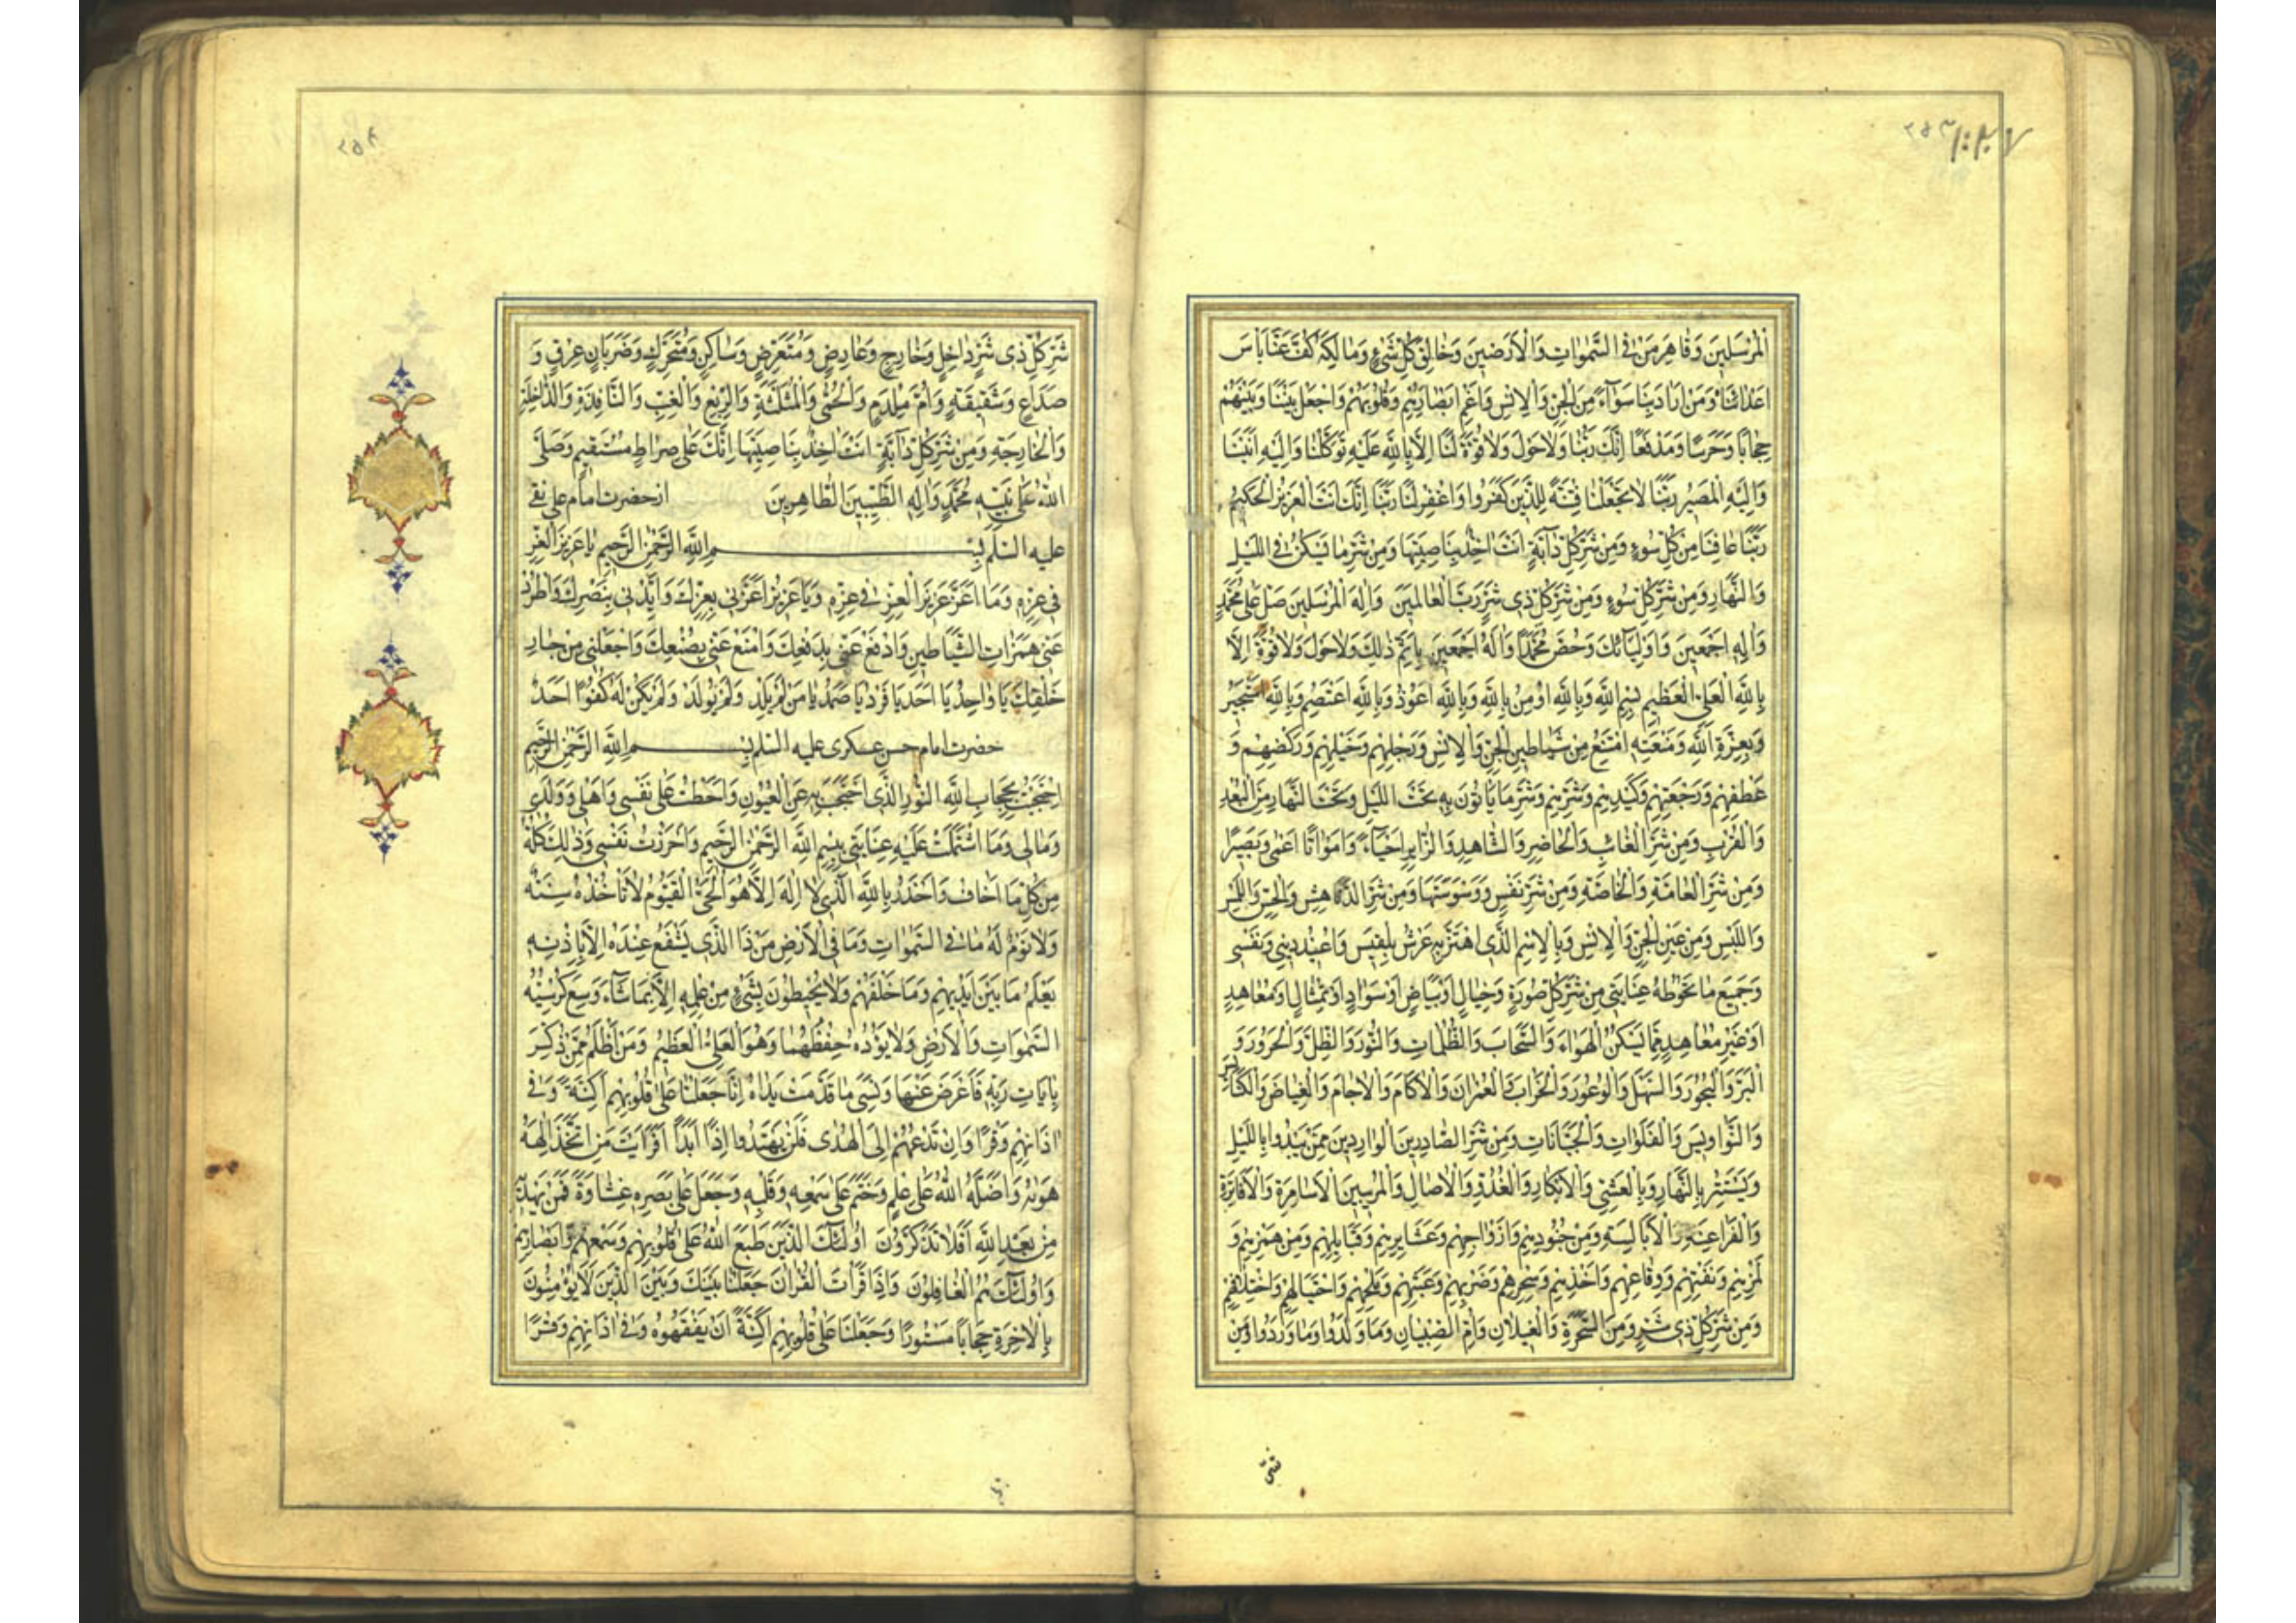 المُرْسَلِينَ وَقَاهِرَ مَنْ فِي السَّمٰوَاتِ وَالْأَرَضِينَ وَخَالِقَ كُلِّ شَيْءٍ وَمَالِكَهُ كُفَّ عَنَّا بَاسَ
اَعْدَائِنَا وَمَنْ اَرَادَ بِنَا سُوٓاءً مِنَ الْجِنِّ وَالْاِنْسِ وَاَعْمِ اَبْصَارَهُمْ وَقُلُوبَهُمْ وَاجْعَلْ بَيْنَنَا وَبَيْنَهُمْ
حِجَابًا وَحَرَسًا وَمَدْفَعًا اِنَّكَ رَبُّنَا وَلَا حَوْلَ وَلَا قُوَّةَ لَنَا اِلَّا بِاللّٰهِ عَلَيْهِ تَوَكَّلْنَا وَاِلَيْهِ اَنَبْنَا
وَاِلَيْهِ الْمَصِيرُ رَبَّنَا لَا تَجْعَلْنَا فِتْنَةً لِلَّذِينَ كَفَرُوا وَاغْفِرْ لَنَا رَبَّنَا اِنَّكَ اَنْتَ الْعَزِيزُ الْحَكِيمُ
رَبَّنَا عَافِنَا مِنْ كُلِّ سُوءٍ وَمِنْ شَرِّ كُلِّ دَآبَّةٍ اَنْتَ اٰخِذٌ بِنَاصِيَتِهَا وَمِنْ شَرِّ مَا يَسْكُنُ فِي اللَّيْلِ
وَالنَّهَارِ وَمِنْ شَرِّ كُلِّ سُوءٍ وَمِنْ شَرِّ كُلِّ ذِي شَرٍّ رَبَّ الْعَالَمِينَ وَاِلٰهَ الْمُرْسَلِينَ صَلِّ عَلَى مُحَمَّدٍ
وَاٰلِهِ اَجْمَعِينَ وَاَوْلِيَآئِكَ وَخُصَّ مُحَمَّدًا وَاٰلَهُ اَجْمَعِينَ بِاَتَمِّ ذٰلِكَ وَلَا حَوْلَ وَلَا قُوَّةَ اِلَّا
بِاللّٰهِ الْعَلِيِّ الْعَظِيمِ بِسْمِ اللّٰهِ وَبِاللّٰهِ اُومِنُ بِاللّٰهِ وَبِاللّٰهِ اَعُوذُ وَبِاللّٰهِ اَعْتَصِمُ وَبِاللّٰهِ اَسْتَجِيرُ
وَبِعِزَّةِ اللّٰهِ وَمَنْعَتِهِ اَمْتَنِعُ مِنْ شَيَاطِينِ الْجِنِّ وَالْاِنْسِ وَرَجِلِهِمْ وَخَيْلِهِمْ وَرَكْضِهِمْ وَ
عَطْفِهِمْ وَرَجْعَتِهِمْ وَكَيْدِهِمْ وَشَرِّهِمْ وَشَرِّ مَا يَاْتُونَ بِهِ تَحْتَ اللَّيْلِ وَتَحْتَ النَّهَارِ مِنَ الْبُعْدِ
وَالْقُرْبِ وَمِنْ شَرِّ الْغَائِبِ وَالْحَاضِرِ وَالشَّاهِدِ وَالزَّايِرِ اَحْيَاءً وَاَمْوَاتًا اَعْمٰى وَبَصِيرًا
وَمِنْ شَرِّ الْعَامَّةِ وَالْخَاصَّةِ وَمِنْ شَرِّ نَفْسٍ وَوَسْوَسَتِهَا وَمِنْ شَرِّ الدَّناهِشِ وَالْحِسِّ وَاللَّمْسِ
وَاللُّبْسِ وَمِنْ عَيْنِ الْجِنِّ وَالْاِنْسِ وَبِالْاِسْمِ الَّذِي اهْتَزَّ بِهِ عَرْشُ بِلْقِيسَ وَاُعِيذُ دِينِي وَنَفْسِي
وَجَمِيعَ مَا تَحُوطُهُ عِنَايَتِي مِنْ شَرِّ كُلِّ صُورَةٍ وَخِيَالٍ اَوْ بَيَاضٍ اَوْ سَوَادٍ اَوْ تِمْثَالٍ اَوْ مُعَاهِدٍ
اَوْ غَيْرِ مُعَاهِدٍ مِمَّا يَسْكُنُ الْهَوَاءَ وَالسَّحَابَ وَالظُّلُمَاتِ وَالنُّورَ وَالظِّلَّ وَالْحَرُورَ وَ
الْبَرَّ وَالْبُحُورَ وَالسَّهْلَ وَالْوُعُورَ وَالْخَرَابَ وَالْعُمْرَانَ وَالْاٰكَامَ وَالْاٰجَامَ وَالْغِيَاضَ وَالْكَنَائِسَ
وَالنَّوَاوِيسَ وَالْفَلَوَاتِ وَالْجَبَّانَاتِ وَمِنْ شَرِّ الصَّادِرِينَ الْوَارِدِينَ مِمَّنْ يَبْدُوا بِاللَّيْلِ
وَيَسْتَتِرُ بِالنَّهَارِ وَبِالْعَشِيِّ وَالْاِبْكَارِ وَالْغُدُوِّ وَالْاٰصَالِ وَالْمُرِيبِينَ الْاَسَامِرَةِ وَالْاَفَاتِرَةِ
وَالْفَرَاعِنَةِ وَالْاَبَالِسَةِ وَمِنْ جُنُودِهِمْ وَاَزْوَاجِهِمْ وَعَشَايِرِهِمْ وَقَبَايِلِهِمْ وَمِنْ هَمْزِهِمْ وَ
لَمْزِهِمْ وَنَفْثِهِمْ وَوِقَاعِهِمْ وَاَخْذِهِمْ وَسِحْرِهِمْ وَضَرْبِهِمْ وَعَبَثِهِمْ وَلَمْحِهِمْ وَاحْتِيَالِهِمْ وَاخْتِلَافِهِمْ
وَمِنْ شَرِّ كُلِّ ذِي شَرٍّ وَمِنَ السَّحَرَةِ وَالْغِيلَانِ وَاُمِّ الصِّبْيَانِ وَمَا وَلَدُوا وَمَا وَرَدُوا وَمِنْ
۲۵۴
شَرِّ كُلِّ ذِي شَرٍّ دَاخِلٍ وَخَارِجٍ وَعَارِضٍ وَمُتَعَرِّضٍ وَسَاكِنٍ وَمُتَحَرِّكٍ وَضَرَبَانِ عِرْقٍ وَ
صُدَاعٍ وَشَقِيقَةٍ وَاُمِّ مِلْدَمٍ وَالْحُمّٰى وَالْمُثَلَّثَةِ وَالرِّبْعِ وَالْغِبِّ وَالنَّافِذَةِ وَالدَّاخِلَةِ
وَالْخَارِجَةِ وَمِنْ شَرِّ كُلِّ دَآبَّةٍ اَنْتَ اٰخِذٌ بِنَاصِيَتِهَا اِنَّكَ عَلٰى صِرَاطٍ مُسْتَقِيمٍ وَصَلَّى
اللّٰهُ عَلٰى نَبِيِّهِ مُحَمَّدٍ وَاٰلِهِ الطَّيِّبِينَ الطَّاهِرِينَ از حضرت امام علی نقی
علیه السلم بِسْمِ اللّٰهِ الرَّحْمٰنِ الرَّحِيمِ يَا عَزِيزَ الْعِزِّ
فِي عِزِّهِ وَمَا اَعَزَّ عَزِيزَ الْعِزِّ فِي عِزِّهِ وَيَا عَزِيزُ اَعِزَّنِي بِعِزِّكَ وَاَيِّدْنِي بِنَصْرِكَ وَاطْرُدْ
عَنِّي هَمَزَاتِ الشَّيَاطِينِ وَادْفَعْ عَنِّي بِدَفْعِكَ وَامْنَعْ عَنِّي بِصُنْعِكَ وَاجْعَلْنِي مِنْ خِيَارِ
خَلْقِكَ يَا وَاحِدُ يَا اَحَدُ يَا فَرْدُ يَا صَمَدُ يَا مَنْ لَمْ يَلِدْ وَلَمْ يُولَدْ وَلَمْ يَكُنْ لَهُ كُفُوًا اَحَدٌ
حضرت امام حسن عسکری علیه السلم بِسْمِ اللّٰهِ الرَّحْمٰنِ الرَّحِيمِ
اِحْتَجَبْتُ بِحِجَابِ اللّٰهِ النُّورِ الَّذِي احْتَجَبَ بِهِ عَنِ الْعُيُونِ وَاحْتَطْتُ عَلٰى نَفْسِي وَاَهْلِي وَوَلَدِي
وَمَالِي وَمَا اشْتَمَلَتْ عَلَيْهِ عِنَايَتِي بِبِسْمِ اللّٰهِ الرَّحْمٰنِ الرَّحِيمِ وَاَحْرَزْتُ نَفْسِي وَذٰلِكَ كُلَّهُ
مِنْ كُلِّ مَا اَخَافُ وَاَحْذَرُ بِاللّٰهِ الَّذِي لَا اِلٰهَ اِلَّا هُوَ الْحَيُّ الْقَيُّومُ لَا تَأْخُذُهُ سِنَةٌ
وَلَا نَوْمٌ لَهُ مَا فِي السَّمٰوَاتِ وَمَا فِي الْاَرْضِ مَنْ ذَا الَّذِي يَشْفَعُ عِنْدَهُ اِلَّا بِاِذْنِهِ
يَعْلَمُ مَا بَيْنَ اَيْدِيهِمْ وَمَا خَلْفَهُمْ وَلَا يُحِيطُونَ بِشَيْءٍ مِنْ عِلْمِهِ اِلَّا بِمَا شَآءَ وَسِعَ كُرْسِيُّهُ
السَّمٰوَاتِ وَالْاَرْضَ وَلَا يَؤُدُهُ حِفْظُهُمَا وَهُوَ الْعَلِيُّ الْعَظِيمُ وَمَنْ اَظْلَمُ مِمَّنْ ذُكِّرَ
بِاٰيَاتِ رَبِّهِ فَاَعْرَضَ عَنْهَا وَنَسِيَ مَا قَدَّمَتْ يَدَاهُ اِنَّا جَعَلْنَا عَلٰى قُلُوبِهِمْ اَكِنَّةً وَفِي
اٰذَانِهِمْ وَقْرًا وَاِنْ تَدْعُهُمْ اِلَى الْهُدٰى فَلَنْ يَهْتَدُوا اِذًا اَبَدًا اَفَرَاَيْتَ مَنِ اتَّخَذَ اِلٰهَهُ
هَوٰيهُ وَاَضَلَّهُ اللّٰهُ عَلٰى عِلْمٍ وَخَتَمَ عَلٰى سَمْعِهِ وَقَلْبِهِ وَجَعَلَ عَلٰى بَصَرِهِ غِشَاوَةً فَمَنْ يَهْدِيهِ
مِنْ بَعْدِ اللّٰهِ اَفَلَا تَذَكَّرُونَ اُولٰٓئِكَ الَّذِينَ طَبَعَ اللّٰهُ عَلٰى قُلُوبِهِمْ وَسَمْعِهِمْ وَاَبْصَارِهِمْ
وَاُولٰٓئِكَ هُمُ الْغَافِلُونَ وَاِذَا قَرَأْتَ الْقُرْاٰنَ جَعَلْنَا بَيْنَكَ وَبَيْنَ الَّذِينَ لَا يُؤْمِنُونَ
بِالْاٰخِرَةِ حِجَابًا مَسْتُورًا وَجَعَلْنَا عَلٰى قُلُوبِهِمْ اَكِنَّةً اَنْ يَفْقَهُوهُ وَفِي اٰذَانِهِمْ وَقْرًا